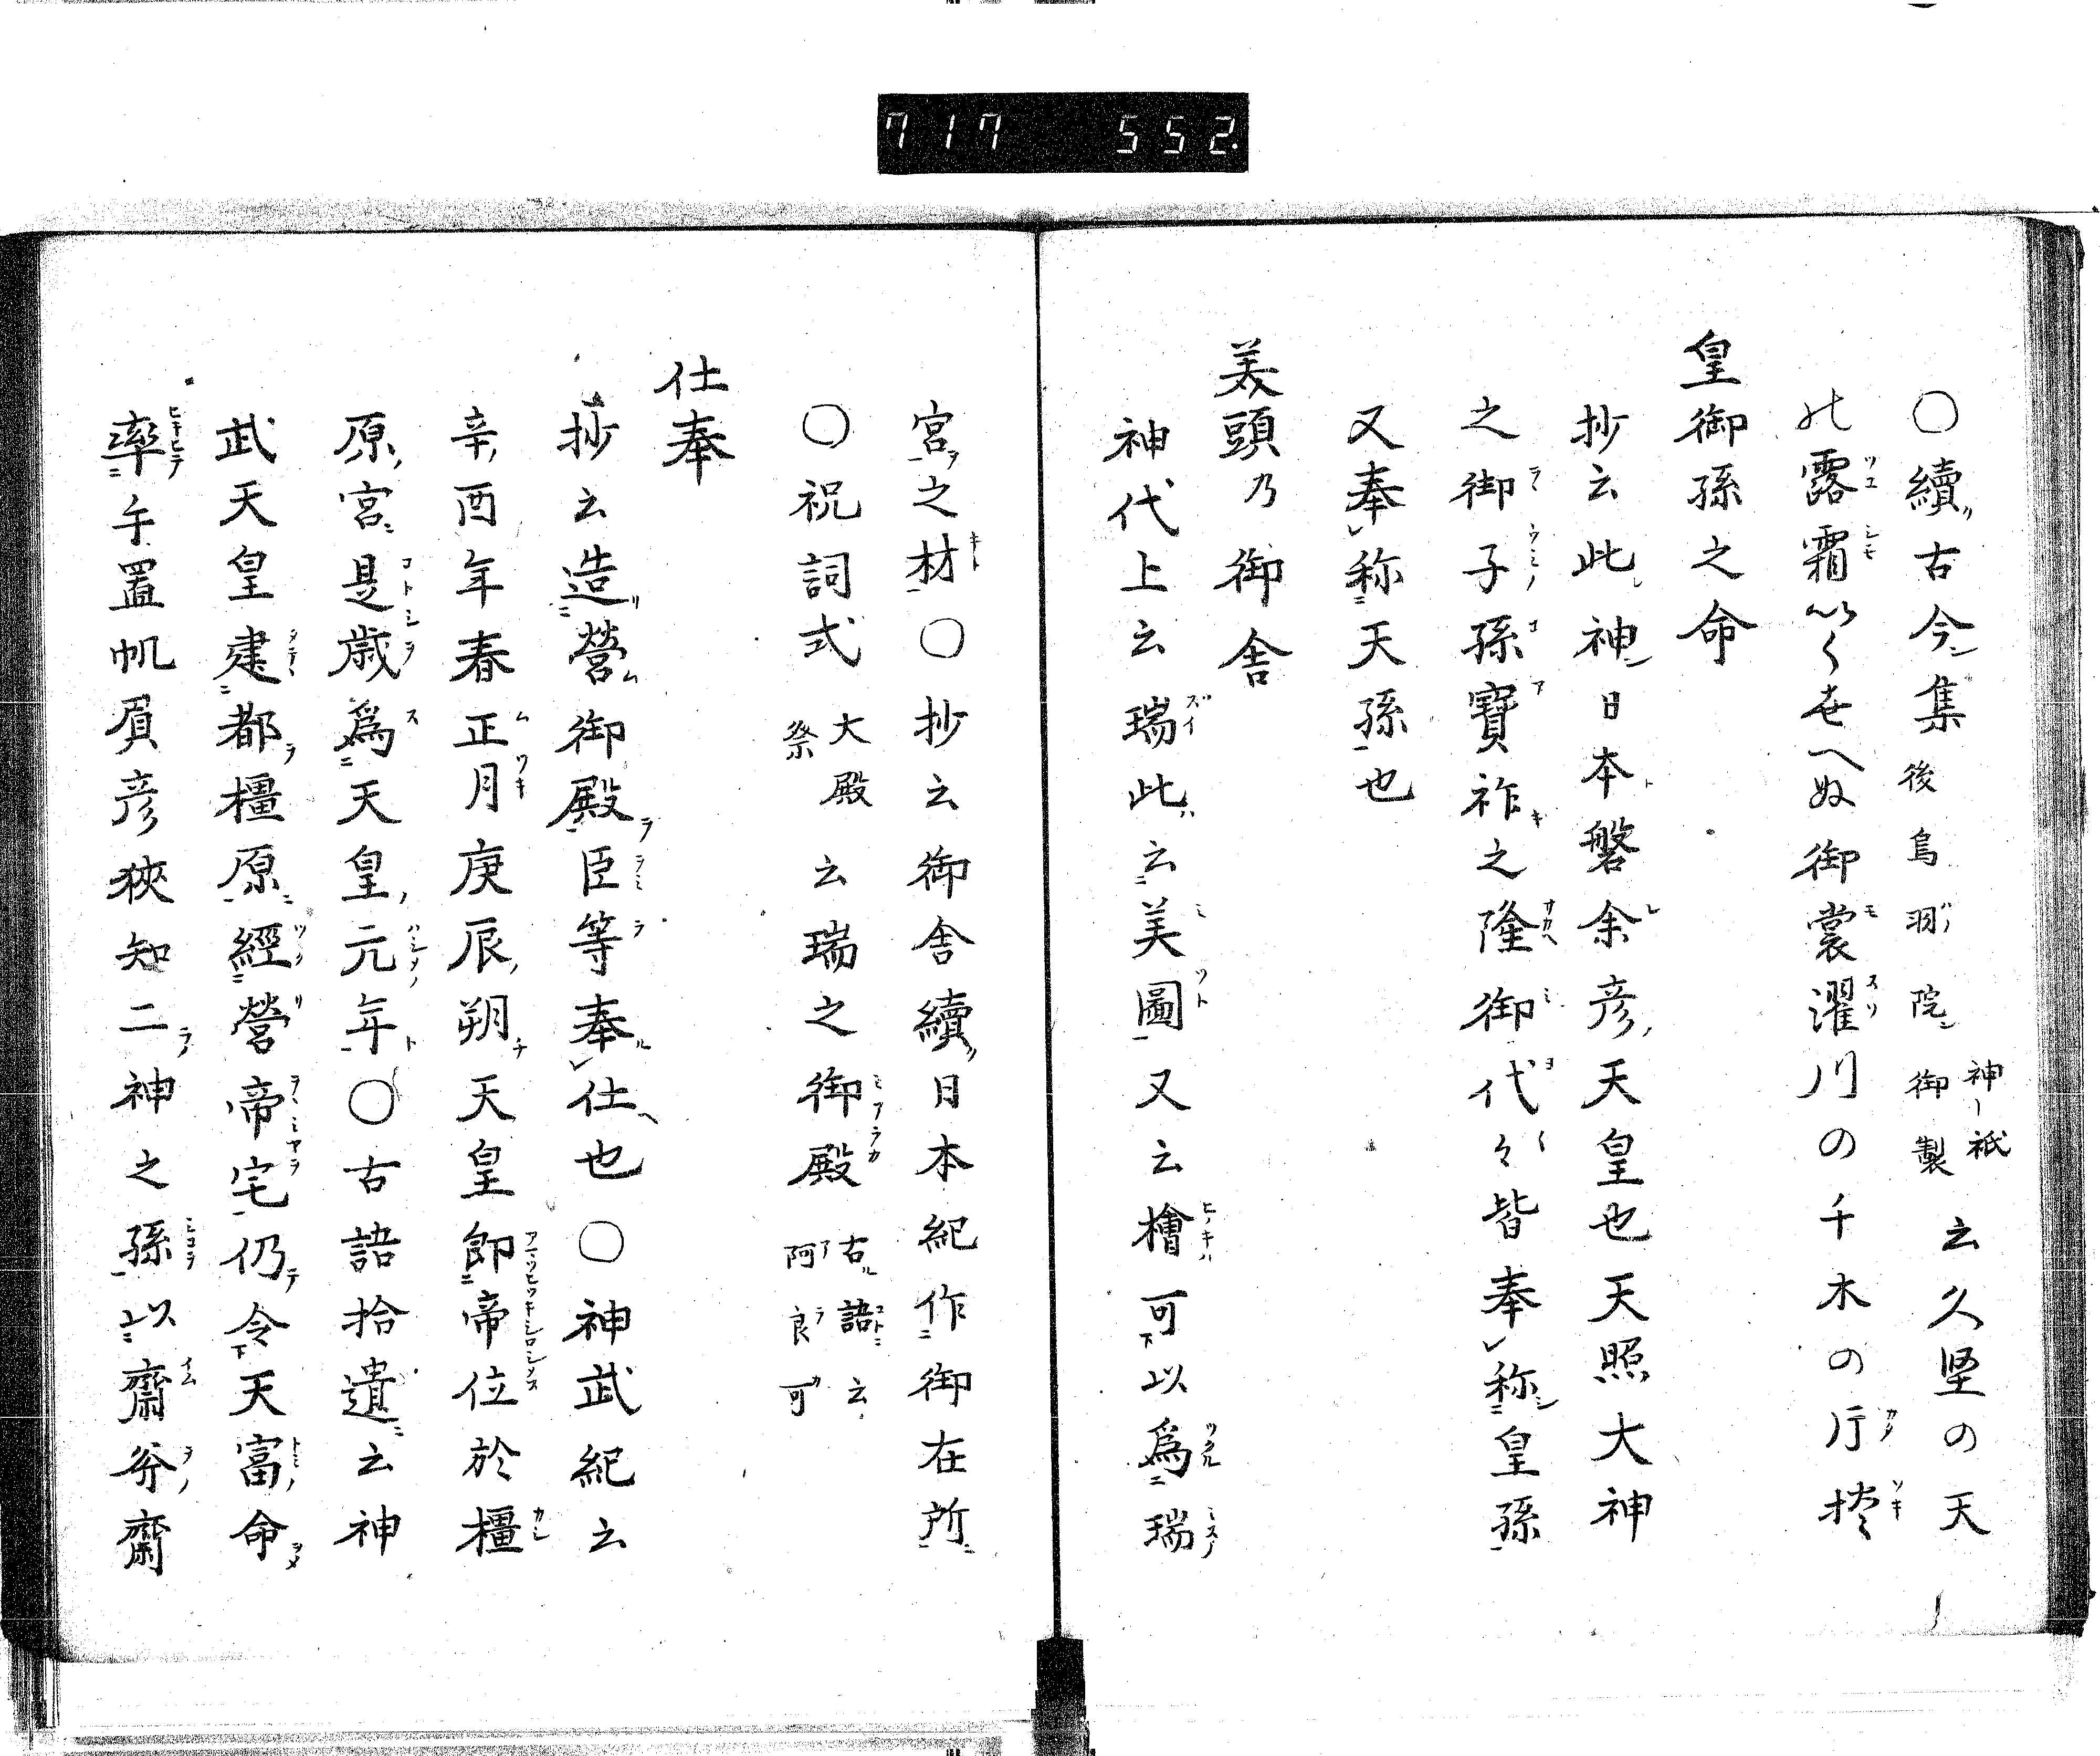 717 552.
○續古今集後鳥羽院御製神祇云久堅の天
の露霜いくせへぬ御裳濯川の千木の片捽
皇御孫之命
抄云此神日本磐余彦天皇也天照大神
之御子孫寶祚之隆御代々皆奉称皇孫
又奉称天孫也
美頭乃御舎
神代上云瑞此云美圖又云檜可以爲瑞
宮之材○抄云御舎續日本紀作御在所
○祝詞式大殿祭云瑞之御殿古語云阿良可
仕奉
抄云造營御殿臣等奉仕也○神武紀云
辛酉年春正月庚辰朔天皇即帝位於橿
原宮是歳爲天皇元年○古語拾遺云神
武天皇建都橿原經營帝宅仍令天富命
率手置帆屓彦狹知二神之孫以齋斧齋